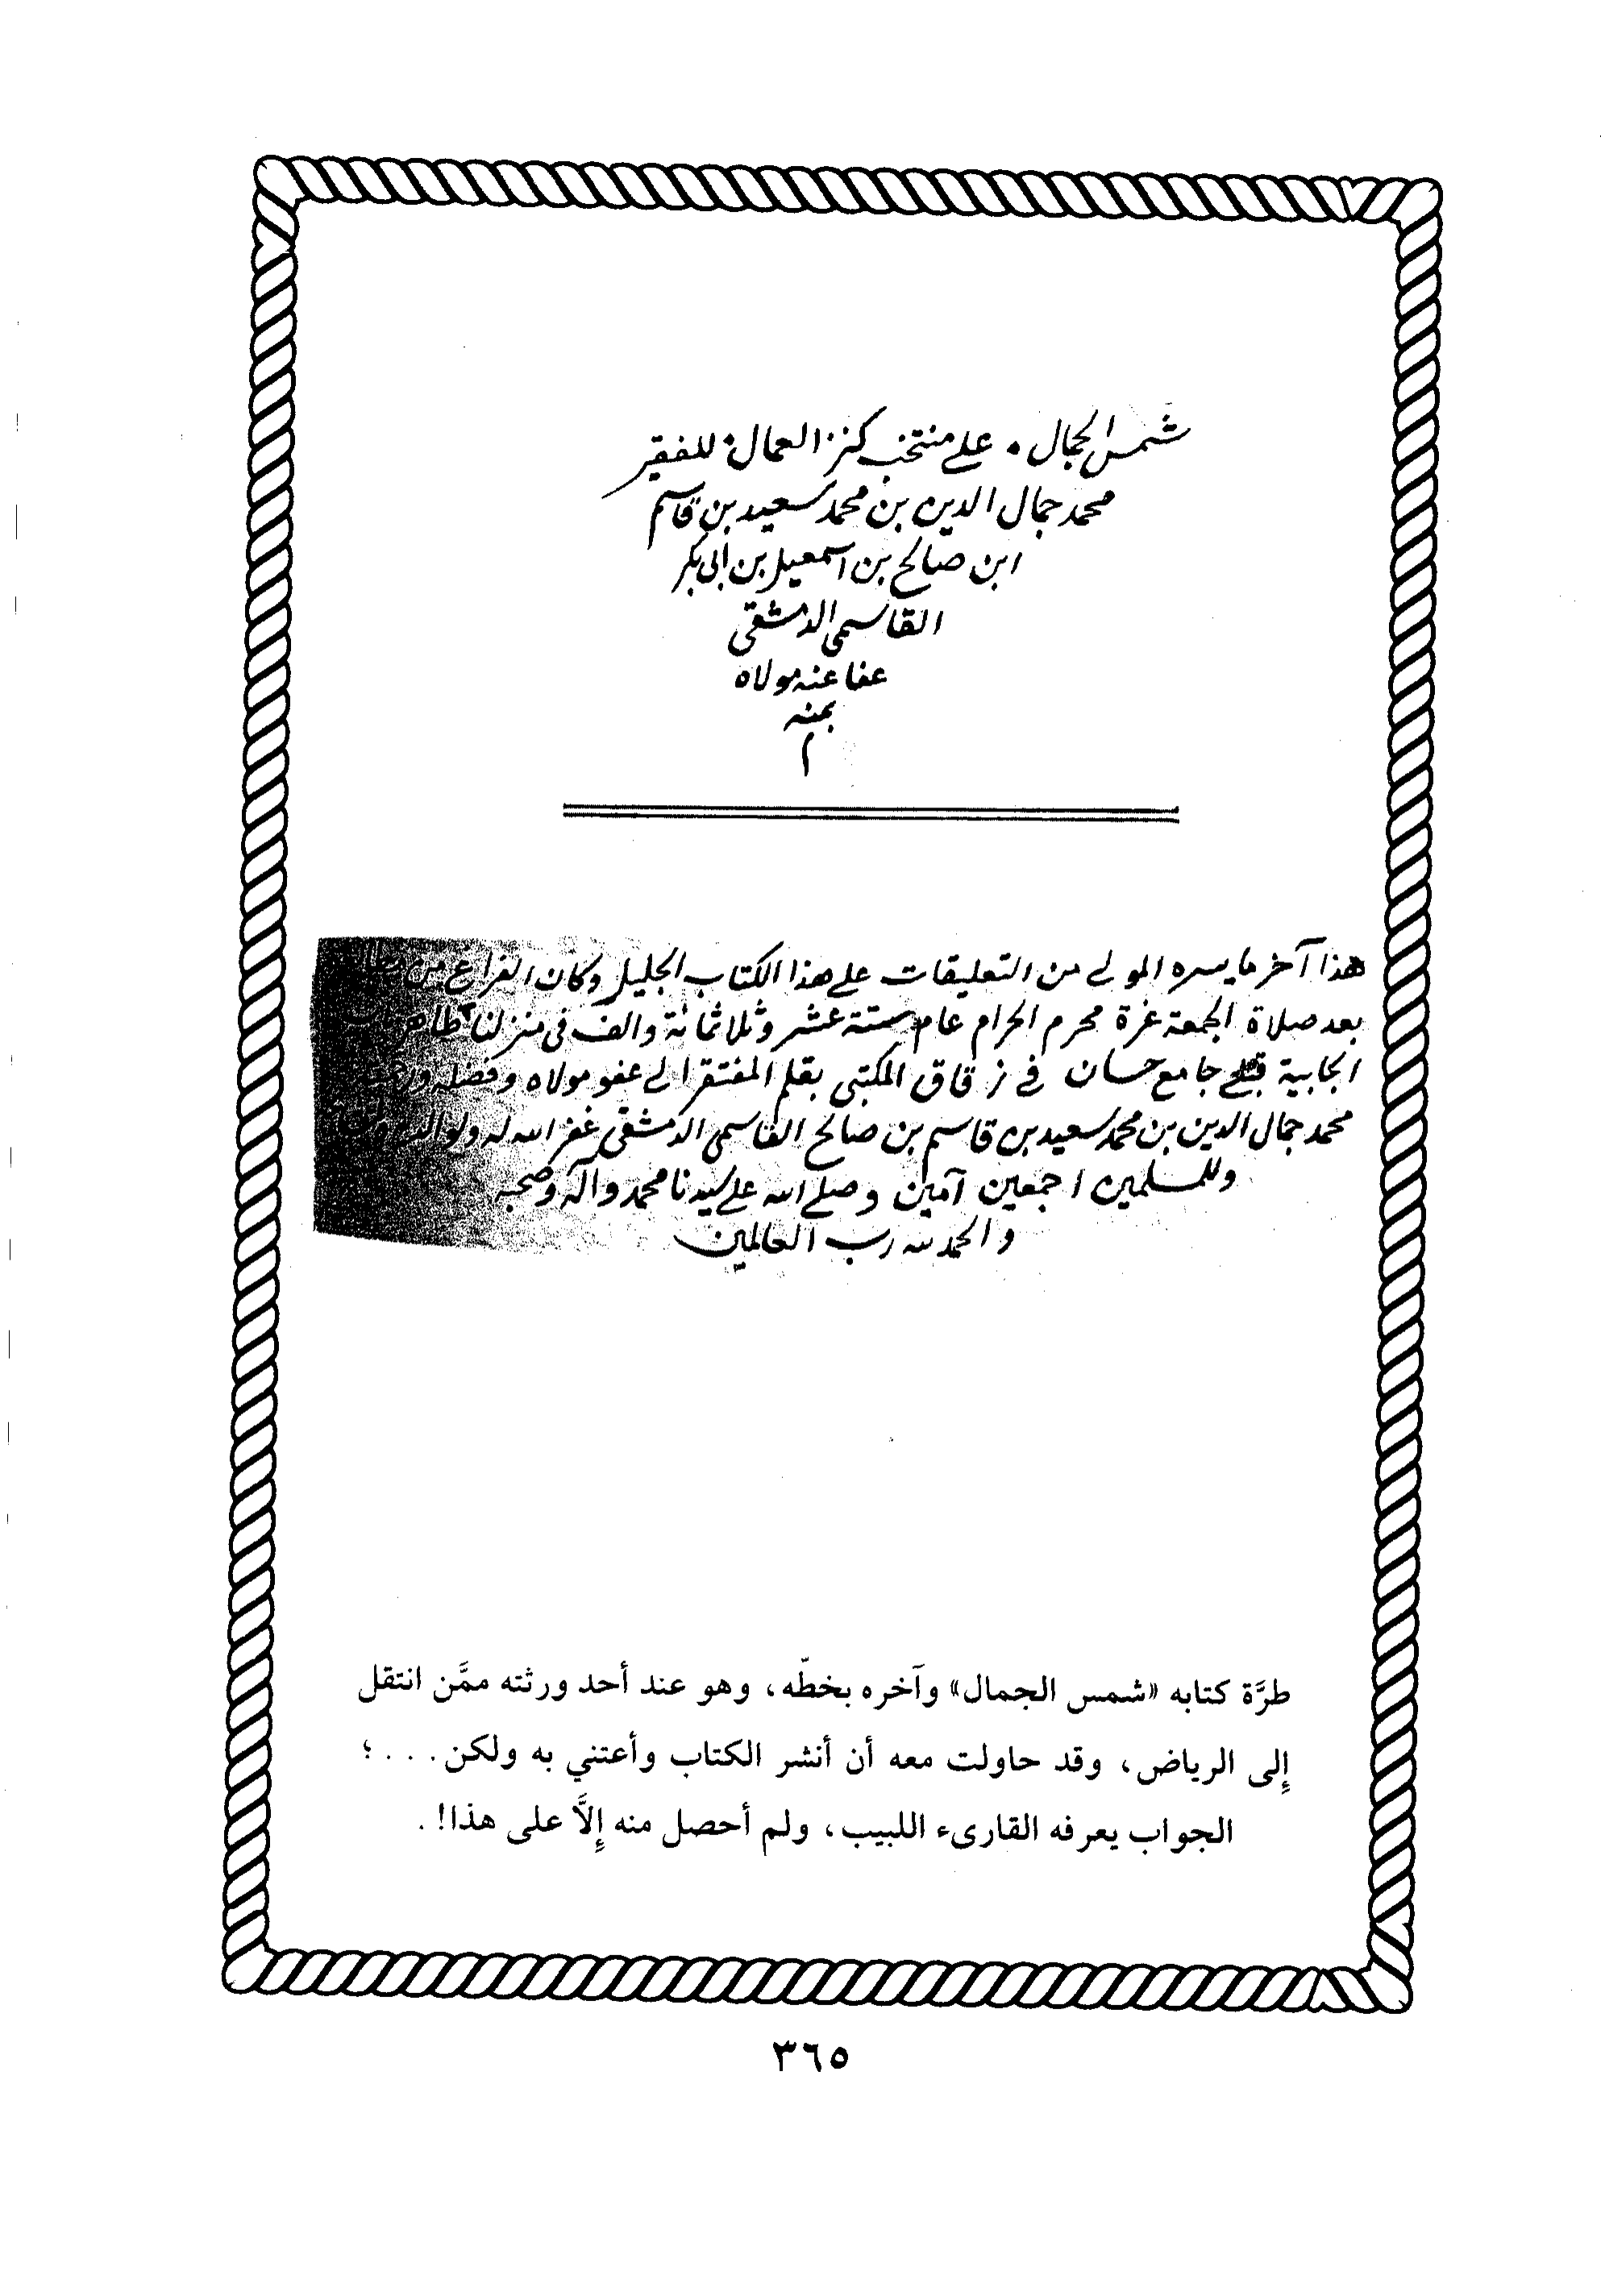 شمس الجمال . على منتخب كنز العمال . للفقير
محمد جمال الدين بن محمد سعيد بن قاسم
ابن صالح بن اسمعيل بن ابي بكر
القاسمي الدمشقي
عفا عنه مولاه
بمنه
م
هذا آخر ما يسره المولى من التعليقات على هذا الكتاب الجليل وكان الفراغ من
بعد صلاة الجمعة غرة محرم الحرام عام ستة عشر وثلاثمائة والف في منزلنا ظاهر
الجابية قبلي جامع حسان في زقاق المكتبي بقلم المفتقر الى عفو مولاه وفضله
محمد جمال الدين بن محمد سعيد بن قاسم بن صالح القاسمي الدمشقي غفر الله له ولوالديه
وللمسلمين اجمعين آمين وصلى الله على سيدنا محمد وآله وصحبه
والحمد لله رب العالمين
طرَّة كتابه «شمس الجمال» وآخره بخطّه، وهو عند أحد ورثته ممَّن انتقل
إلى الرياض، وقد حاولت معه أن أنشر الكتاب وأعتني به ولكن . . . ؛
الجواب يعرفه القارىء اللبيب، ولم أحصل منه إلاَّ على هذا! .
٣٦٥